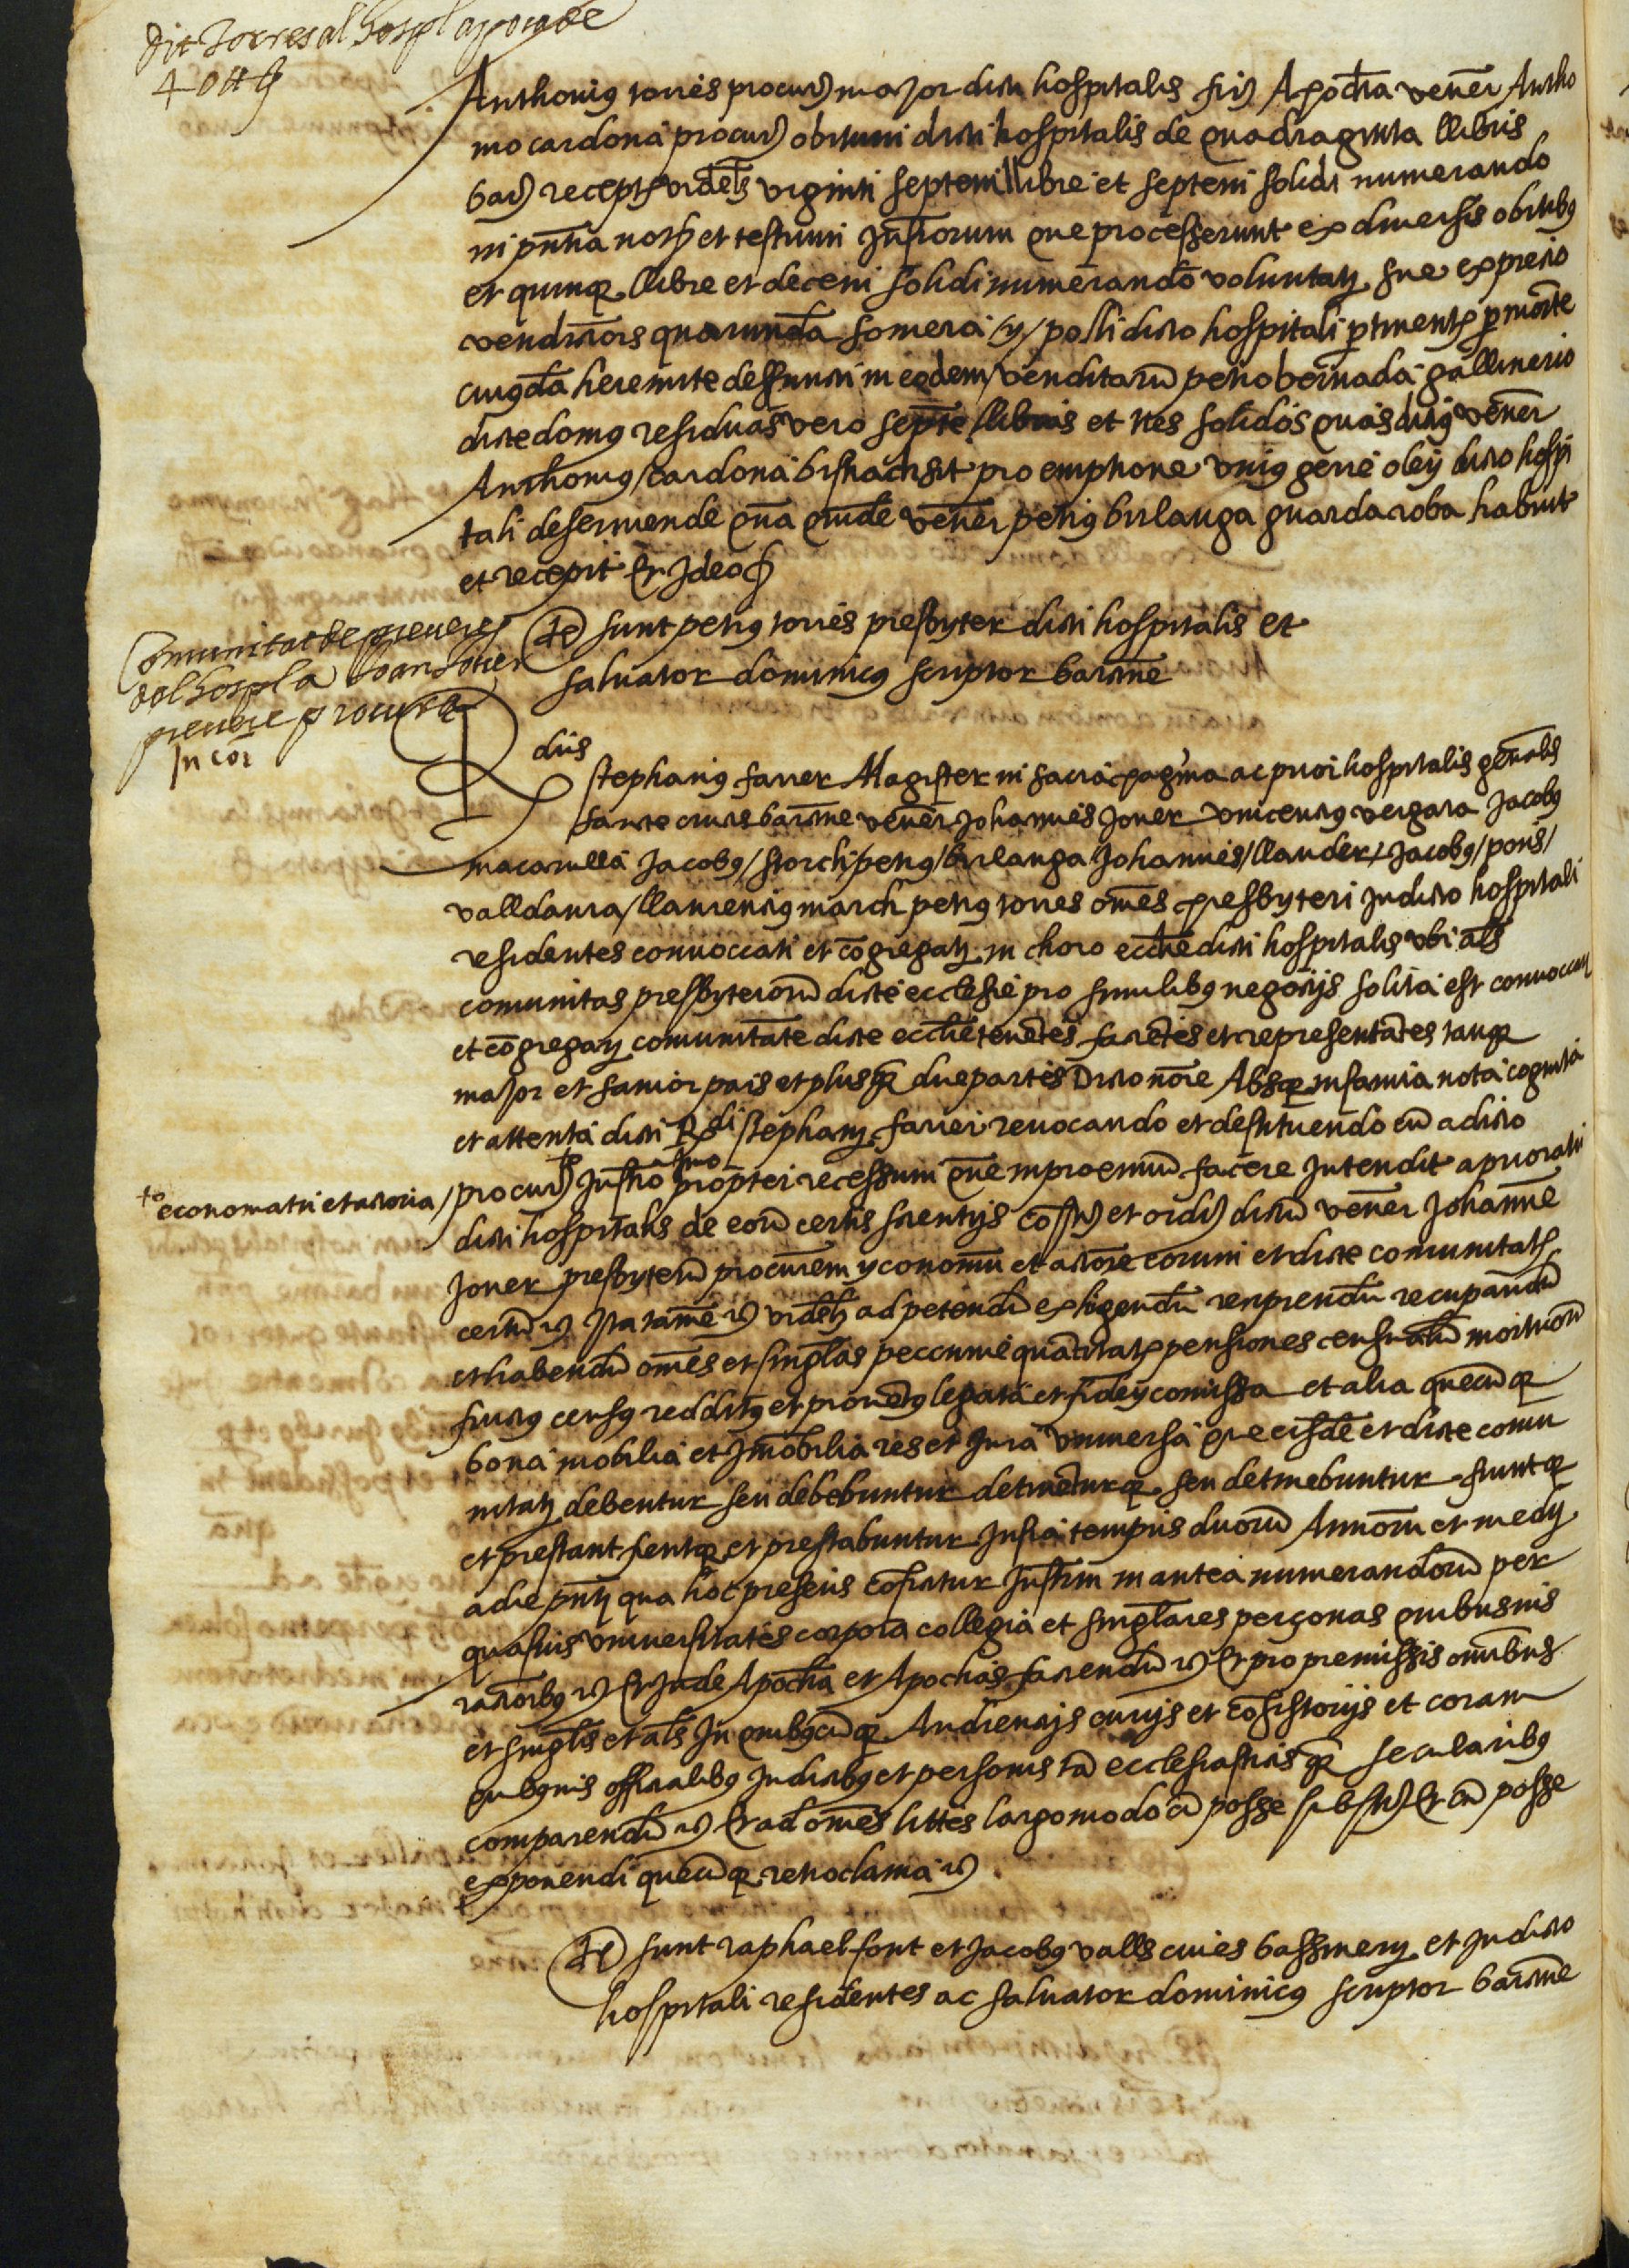 dit Torres al hospl apocade
40 ₶
Anthonius torres procur) major dicti hospitalis fir) Apocha vener Antho
nio cardona procur) obituum dicti hospitalis de quadraginta llibris
bar) recepts videlt viginti septem llibre et septem solidi numerando
in pntia noty et testium Infrorum que processerunt ex diversis obitibus
et quinque llibre et decem solidi numerando voluntaty sue ex precio
vendicors quarunda somera / y / polli dicto hospitali ptinents p morte
cuiusda heremite deffuncti in eodem / venditaru petro bernada gallinerio
dicte domus residuas vero septe llibras et tres solidos quas dictus vener
Anthonius / cardona bistraxit pro emptione unius gerre olei dicto hospi
tali deservende qua quide vener petrus burlanga guardaroba habuit
et recepit Et Ideo
Te sunt petrus torres presbyter dicti hospitalis et
salvator dominicus scriptor barcine
Comunitat de preveres
del hospl a Joan Jover
prevere procura
In cor
R dus
stephanus farrer Magister in sacra pagina ac prior hospitalis generals
sancte crucis barcine vener Johannes Joner vincentius vergara Jacobus
macarulla Jacobus / storch / petrus / burlanga Johannes / llauder / Jacobus / pons /
valldaura / llaurencius march petrus torres omes presbyteri In dicto hospitali
residentes convoccati et cogregaty in choro ecclie dicti hospitalis ubi als
comunitas presbyteroru dicte ecclesie pro similibus negocijs solita est convoccari
et cogregary comunitate dicte ecclie tenetes facietes et representates tanq
major et sanior pars et plusq due partes Dicto nore Absq infamia nota cognita
et attenta dicti Rdi stephany farrer revocando et destituendo eu a dicto
+ economatu et actoria / procur) Infro propter recessum que in proximu facere Intendit a prioratu
dicti hospitalis de eoru certis scientijs costi) et ordi) dictu vener Johanne
Joner presbyteru procurem yconomu et actore eorum et dicte comunitaty
certu) Ita tame videlt ad petendu exhigendu reeprendu recuperandu
et habendu omes et singlas peccunie quatitats pensiones censualiu mortuoru
fructus census redditus et provetus legata et fideycomissa et alia quecuq
bona mobilia et Imobilia res et Jura universa que eisde et dicte comu
nitaty debentur seu debebuntur detinetur q seu detinebuntur fiunt q
et prestant fientq et prestabuntur Infra tempus duoru Annoru et medy
a die pnty qua hoc presens coficitur Instrm in antea numerandoru per
quasvis universitates corpora collegia et singlares personas quibusvis
racoibus Et Inde Apocha et Apochas faciendu Et pro premissis omibus
et singlis et als In quibuscuq Audiencijs curijs et cosistorijs et coram
quibusvis officialibus Judicibus et personis ta ecclesiasticis q secularibus
comparendu Et ad omes littes largo modo cu posse substi) Et cu posse
exponendi quecuq retroclama
Te sunt raphael font et Jacobus valls cives bassinery et In dicto
hospitali residentes ac salvator dominicus scriptor barcine